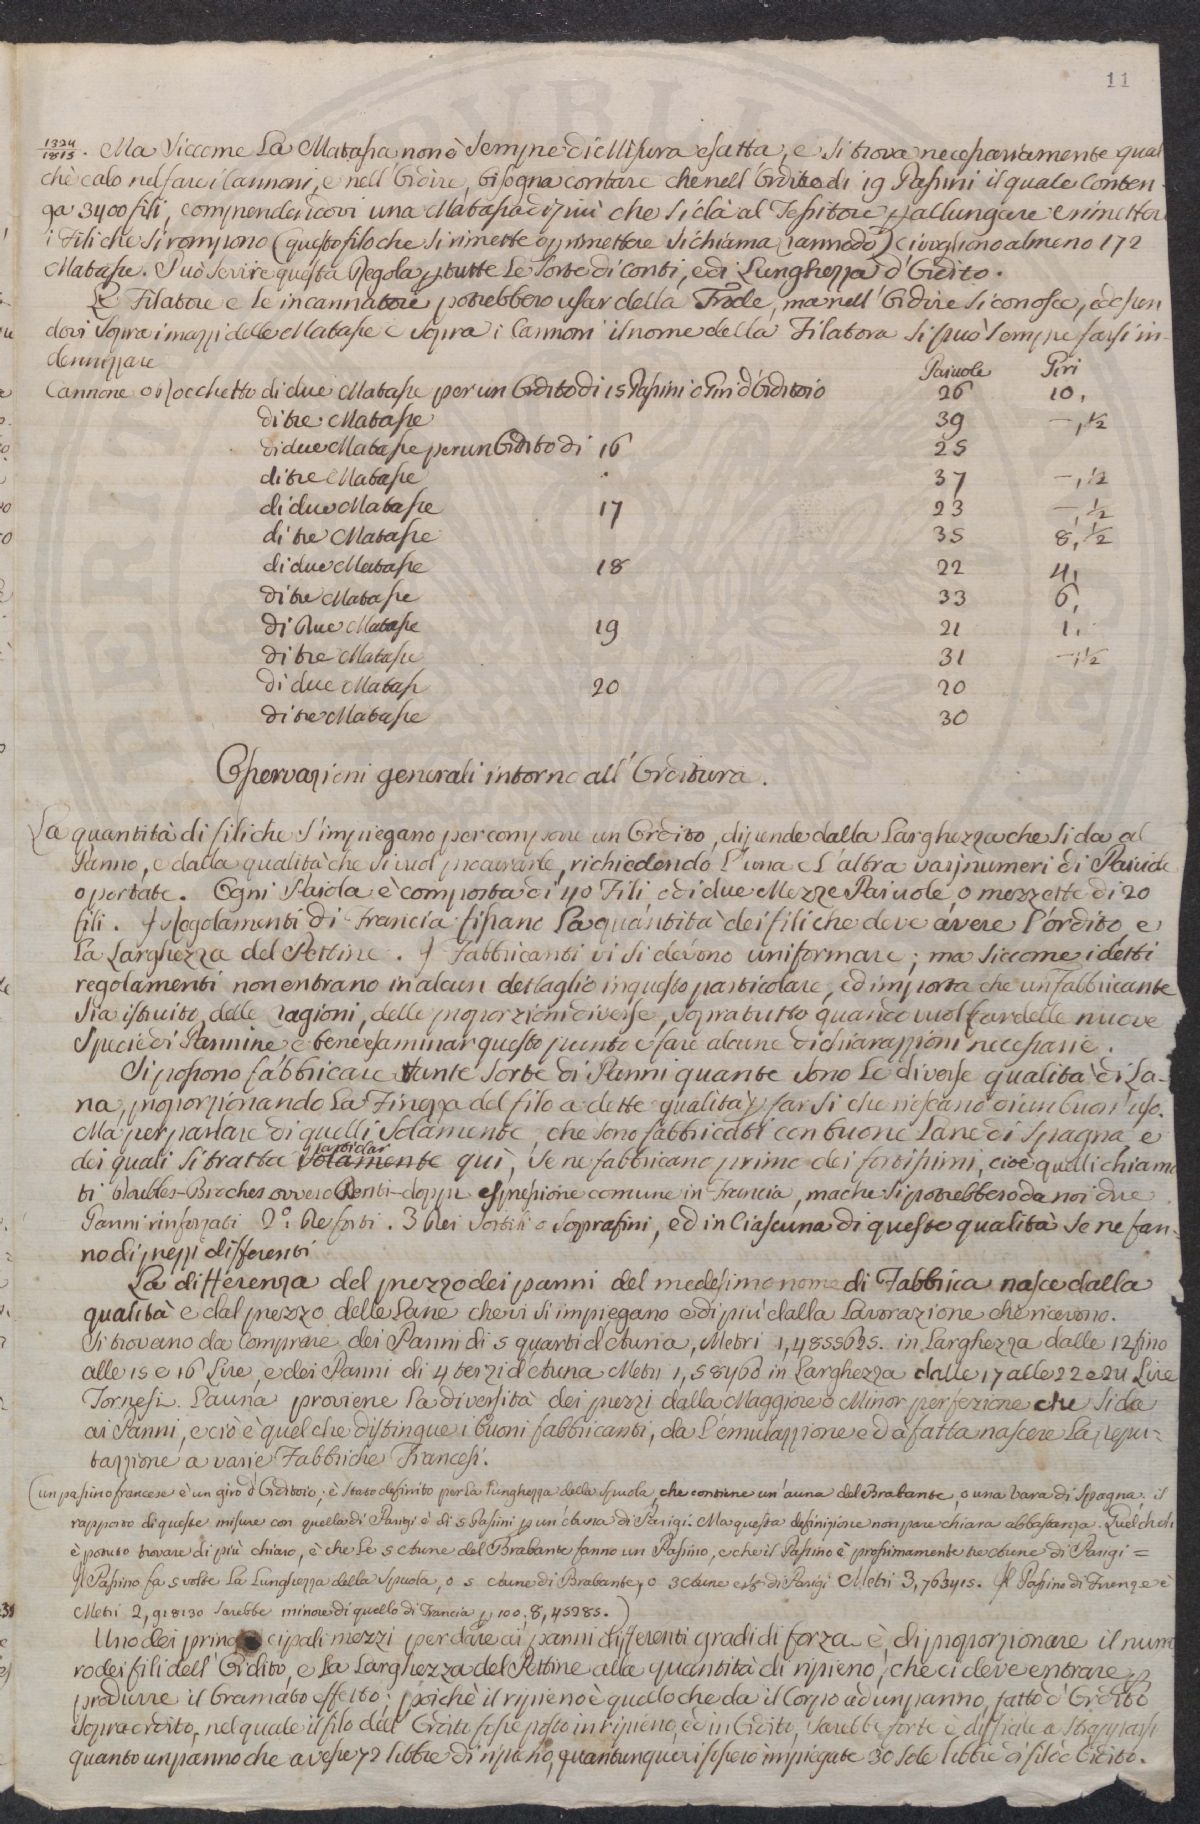 11
1324/1815. Ma siccome la Matassa non è sempre di Misura esatta, e si trova necessariamente qual
chè calo nel fare i Cannoni, e nell'Ordire, bisogna contare che nell'Ordito di 19 Passini il quale conten-
ga 3400 fili, comprendendovi una Matassa di più che si dà al Tessitore p allungare e rimettere
i fili che si rompono (questo filo che si rimette o p rimettere si chiama rannodo) ci vogliono almeno 172
Matasse. Può servire questa Regola p tutte le sorte di conti, e di Lunghezza d'Ordito.
Le Filatore e le incannatore potrebbero usar della Frode, ma nell'Ordire si conosce, ed essen
dovi sopra i mazzi delle Matasse e sopra i Cannoni il nome della Filatora si può sempre farsi in-
dennizzare
Paiuole Giri
Cannone o Rocchetto di due Matasse per un Ordito di 15 Passini o Giri d'Orditoio 26 10,
di tre Matasse 39 —, ½
di due Matasse per un Ordito di 16 25
di tre Matasse 37 —, ½
di due Matasse 17 23 —, ½
di tre Matasse 35 8, ½
di due Matasse 18 22 4,
di tre Matasse 33 6,
di due Matasse 19 21 1,
di tre Matasse 31 —, ½
di due Matass 20 20
di tre Matasse 30
Osservazioni generali intorno all'Orditura.
La quantità di fili che s'impiegano per comporre un Ordito, dipende dalla Larghezza che si da al
Panno, e dalla qualità che si vuol procurarle, richiedendo l'una e l'altra varj numeri di Paiuole
o portate. Ogni Paiola è composta di 40 Fili, e di due Mezze Paiuole, o mezzette di 20
fili. I Regolamenti di Francia fissano la quantità dei fili che deve avere l'ordito, e
la Larghezza del Pettine. I Fabbricanti vi si devono uniformare; ma siccome i detti
regolamenti non entrano in alcun dettaglio in questo particolare, ed importa che un Fabbricante
sia istruito delle ragioni, delle proporzioni diverse, sopratutto quando vuol far delle nuove
Specie di Pannine è bene esaminar questo punto e fare alcune dichiarazzioni necessarie.
Si possono fabbricare tante sorte di Panni quante sono le diverse qualità di La-
na, proporzionando la Finezza del filo a dette qualità p far sì che riescano di un buon uso.
Ma per parlare di quelli solamente, che sono fabbricati con buone Lane di Spagna, e
dei quali si tratta solamente quì, se ne fabbricano primo dei fortissimi, cioè quelli chiama
ti Doubles-Broches ovvero Denti-doppi espressione comune in Francia, ma che si potrebbero da noi dire
Panni rinforzati 2.° Dei forti. 3 Dei sottili o soprafini, ed in Ciascuna di queste qualità se ne fan-
no di prezzi differenti
La differenza del prezzo dei panni del medesimo nome di Fabbrica nasce dalla
qualità e dal prezzo delle Lane che vi si impiegano e di più dalla Lavorazione che ricevono.
Si trovano da Comprare dei Panni di 5 quarti d'Auna, Metri 1,485562s. in Larghezza dalle 12 fino
alle 15 e 16 Lire, e dei Panni di 4 terzi d'Auna Metri 1,58460 in Larghezza dalle 17 alle 22 e 24 Lire
Tornesi. L'auna proviene la diversità dei prezzi dalla Maggiore o Minor perfezione che si da
ai Panni, e ciò è quel che distingue i buoni fabbricanti, da l'emulazzione ed a fatta nascere la repu-
tazzione a varie Fabbriche Francesi.
(un passino francese è un giro d'Orditoio; è stato definito per la Lunghezza della spuola, che contiene un'auna del Brabante, o una Vara di Spagna; il
rapporto di queste misure con quella di Parigi è di 5 Passini p un'Auna di Parigi. Ma questa definizione non pare chiara abbastanza. Quel che si
è potuto trovare di più chiaro, è che le 5 Aune del Brabante fanno un Passino, e che il Passino è prossimamente tre Aune di Parigi =
Il Passino fa 5 volte la Lunghezza della Spuola, o 5 Aune di Brabante, o 3 Aune e ⅙ di Parigi Metri 3,763415. Il Passino di Firenze è
Metri 2,918130 sarebbe minore di quello di Francia p 100: 8,45285.)
Uno dei principali mezzi per dare ai panni differenti gradi di forza è, di proporzionare il nume
ro dei fili dell'Ordito, e la Larghezza del Pettine alla quantità di ripieno, che ci deve entrare p
produrre il bramato effetto; poichè il ripieno è quello che da il Corpo ad un panno, fatto d'Ordito
sopra ordito, nel quale il filo dell'Ordito fosse posto in ripieno, ed in Ordito, sarebbe forte e difficile a strapparsi
quanto un panno che avesse 72 libbre di ripieno, quantunque vi fossero impiegate 30 sole libbre di filo d'Ordito.